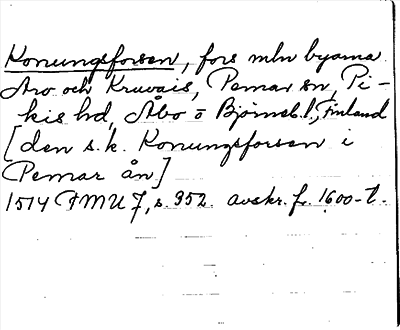 Konungsforsen, fors mln byarna
Aro och Kruvais, Pemar sn, Pi-
kis hd, Åbo o Björneb. l., Finland
[den s.k. Konungsforsen i
Pemar ån]
1514 FMU 7, s. 352. avskr. fr. 1600-t.